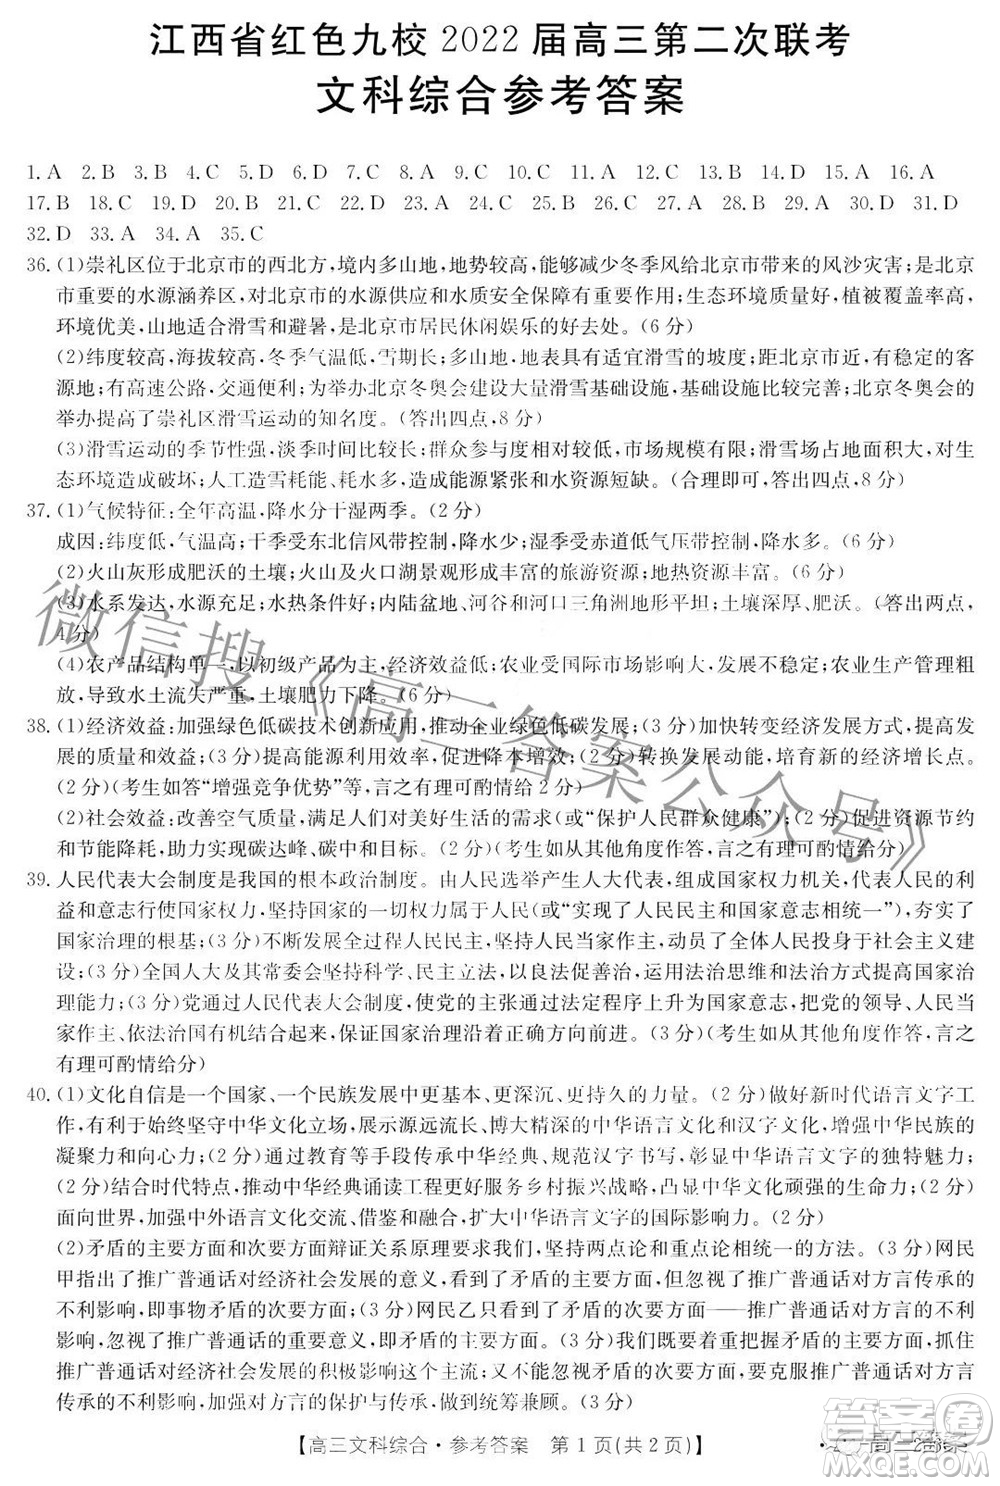 江西省红色九校 2022 届高三第二次联考
文科综合参考答案
1. A 2. B 3. B 4. C 5. D 6. D 7. B 8. A 9. C 10. C 11. A 12. C 13. B 14. D 15. A 16. A
17. B 18. C 19. D 20. B 21. C 22. D 23. C 24. D 25. B 26. C 27. C 28. B 29. A 30. D 31. D
32. D 33. A 34. A 35. C
36. (1)崇礼区位于北京市的西北方,境内多山地,地势较高,能够减少冬季风给北京市带来的风沙灾害;是北京
市重要的水源涵养区,对北京市的水源供应和水质安全保障作用大;生态环境质量好,植被覆盖率高,
环境优美,山地适合滑雪和避暑,是北京市居民休闲娱乐的好去处。(6 分)
(2)纬度较高,海拔较高,冬季气温低,雪期长;多山地,地势总体上具有适宜滑雪的坡度;距北京市近,有稳定的客
源地;有高速公路,交通便利;为北京冬奥会建设大量滑雪基础设施,基础设施比较完善;北京冬奥会的
举办提高了崇礼区滑雪运动的知名度。(答出四点,8 分)
(3)滑雪运动的季节性强,淡季时间比较长;群众参与的基础比较低,市场规模有限;滑雪场占地面积广,对生
态环境造成破坏;人工造雪耗能、耗水多,造成能源紧张和水资源短缺。(合理即可,8 分)
37. (1)气候特征:全年高温,降水分干湿两季。(2 分)
成因:纬度低,气温高;干季受东北信风带控制,降水少;湿季受赤道低气压带控制,降水多。(6 分)
(2)火山灰形成肥沃的土壤;火山和火口湖景观形成丰富的旅游资源;地热资源丰富。(6 分)
(3)水系发达,水源充足;水热条件好;内陆盆地、河谷和河口三角洲地形平坦;土壤深厚、肥沃。(答出两点,
4 分)
(4)农产品结构单一,以初级产品为主,经济效益低;农业受国际市场影响大,发展不稳定;农业生产管理粗
放,导致水土流失严重,土壤肥力下降。(6 分)
38. (1)经济效益:加强绿色低碳技术创新应用,推动企业绿色低碳发展;(3 分)加快转变经济发展方式,提高发
展的质量和效益;(3 分)提高能源利用效率,促进降本增效;(2 分)转换发展动能,培育新的经济增长点。
(2 分)(考生如答“增强竞争优势”等,言之有理可酌情给 2 分)
(2)社会效益:改善空气质量,满足人们对美好生活的需求(或“保护人民群众健康”);(2 分)促进资源节约
和节能降耗,助力实现碳达峰、碳中和目标。(2 分)(考生如从其他角度作答,言之有理可酌情给分)
39. 人民代表大会制度是我国的根本政治制度。由人民选举产生人大代表,组成国家权力机关,代表人民的利
益和意志行使国家权力,坚持国家的一切权力属于人民(或“实现了人民民主和国家意志相统一”),夯实了
国家治理的根基;(3 分)不断发展全过程人民民主,坚持人民当家作主,动员了全体人民投身于社会主义建
设;(3 分)全国人大及其常委会坚持科学、民主立法,以良法促进善治,运用法治思维和法治方式提高国家治
理能力;(3 分)党通过人民代表大会制度,使党的主张通过法定程序上升为国家意志,把党的领导、人民当
家作主、依法治国有机结合起来,保证国家治理的正确方向。(3 分)(考生如从其他角度作答,言之
有理可酌情给分)
40. (1)文化自信是一个国家、一个民族发展中更基本、更深沉、更持久的力量。(2 分)做好新时代语言文字工
作,有利于始终坚守中华文化立场,展示源远流长、博大精深的中华语言文化和汉字文化,增强中华民族的
凝聚力和向心力;(2 分)通过教育等手段传承中华经典、规范汉字书写,彰显中华语言文字的独特魅力;
(2 分)结合时代特点,推进中华经典诵读工程更好服务乡村振兴战略,凸显中华文化强大的生命力;(2 分)
面向世界,加强中外语言文化交流、借鉴和融合,扩大中华语言文字的国际影响力。(2 分)
(2)矛盾的主要方面和次要方面辩证关系的原理要求我们,坚持两点论和重点论相统一。(3 分)网民
甲指出了推广普通话对经济社会发展的意义,即看到了矛盾的主要方面,忽视了推广普通话对方言的不
利影响,即事物矛盾的次要方面;(3 分)网民乙只看到了矛盾的次要方面——推广普通话对方言的不利
影响,忽视了推广普通话的重要意义,即矛盾的主要方面。(3 分)我们要着重把握矛盾的主要方面,抓住
推广普通话对经济社会发展的积极影响这个主流;与此同时,不忽视矛盾的次要方面,要克服推广普通话对方言
传承的不利影响,做好方言的保护与传承,做到统筹兼顾。(3 分)
【高三文科综合·参考答案 第 1 页(共 2 页)】
微信搜《高三答案公众号》
答案圈